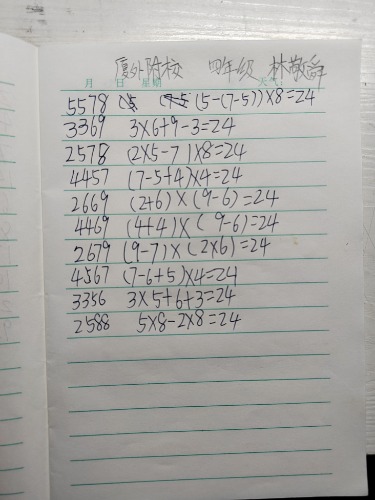 厦外附校 四年级 林敬舜
月 日 星期 天气
5578 (5-(7-5))×8=24
3369 3×6+9-3=24
2578 (2×5-7)×8=24
4457 (7-5+4)×4=24
2669 (2+6)×(9-6)=24
4469 (4+4)×(9-6)=24
2679 (9-7)×(2×6)=24
4567 (7-6+5)×4=24
3356 3×5+6+3=24
2588 5×8-2×8=24